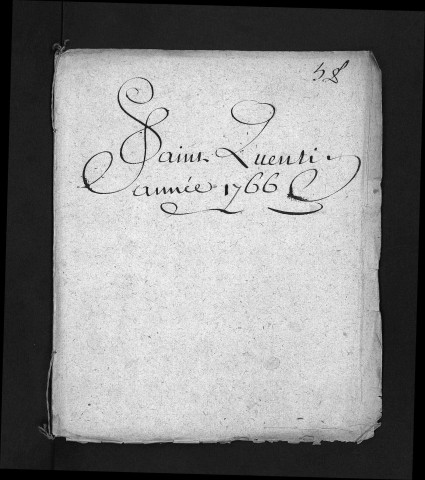 58
Saint Quentin
année 1766